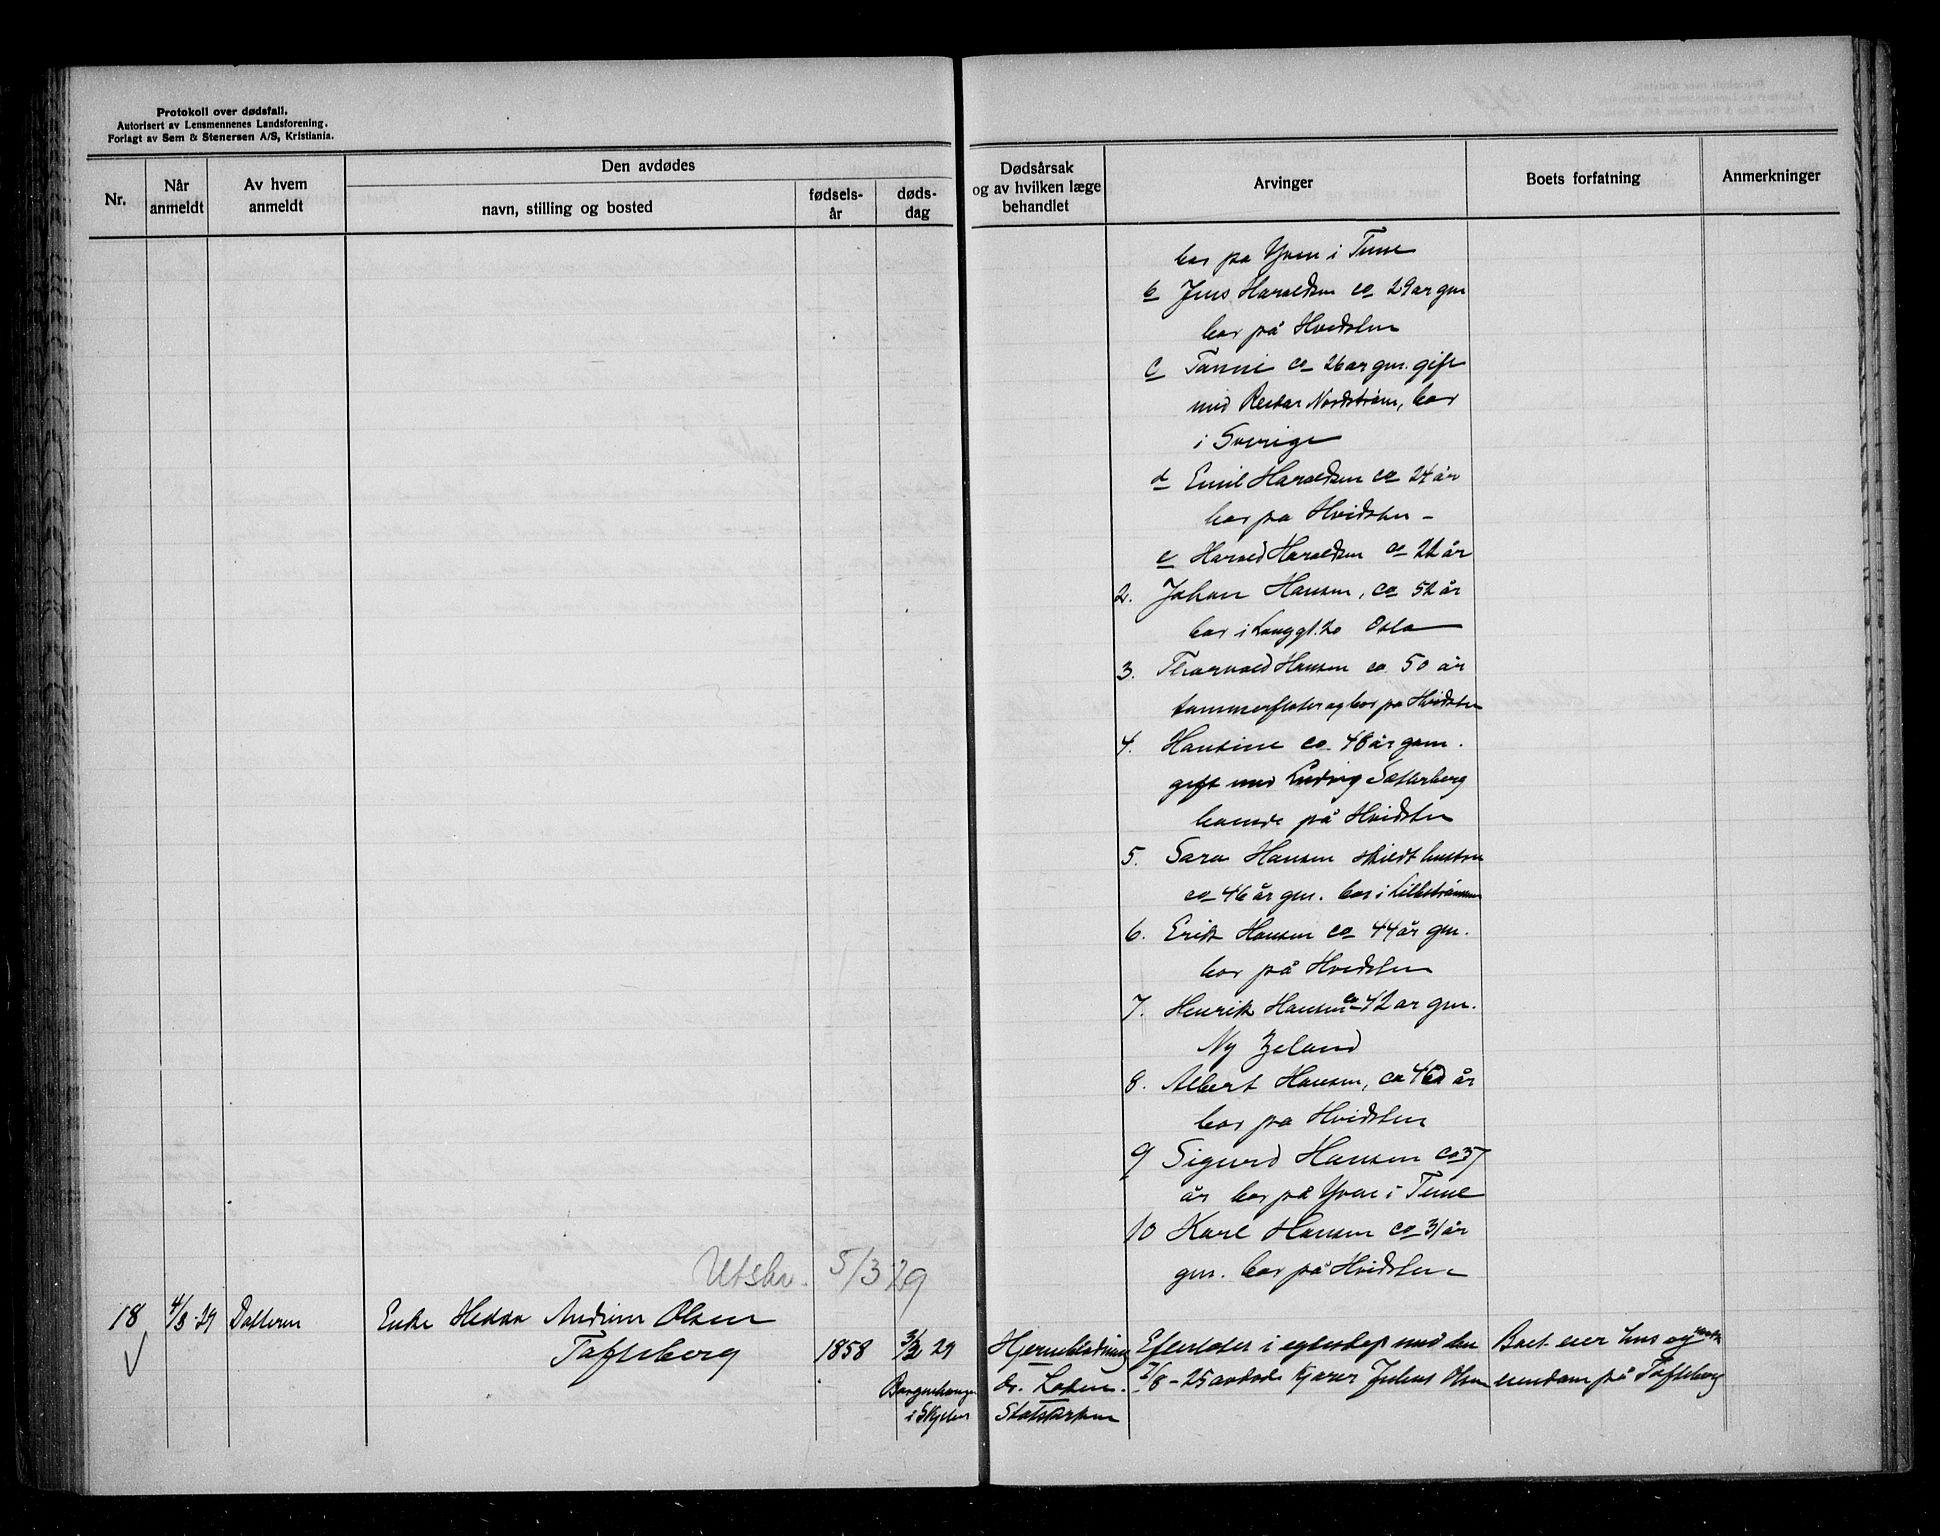 Protokoll over dødsfall.
Autorisert av Lensmennenes Landsforening.
Forlagt av Sem & Stenersen A/S, Kristiania.
Nr.
Når anmeldt
Av hvem anmeldt
Den avdødes
navn, stilling og bosted
fødsels-år
døds-dag
Dødsårsak og av hvilken læge behandlet
Arvinger
Boets forfatning
Anmerkninger
bor på Yven i Tune
b Jens Haraldsen ca 29 ar gm
bor på Hvidsten
c Fanni ca 26 ar gm. gift
med Nordstrøm, bor
i Sverige
d Emil Haraldsen ca 24 år
bor pa Hvidsten –
e Harald Haraldsen ca 22 år
2. Johan Hansen, ca 52 år
bor i Langgt. 20 Oslo
3. Thorvald Hansen ca 50 år
tømmerfløter og bor pa Hvidsten
4. Hansine ca. 48 år gam.
gift med Ludvig Sætterberg
boende på Hvidsten
5. Sara Hansen skildt hustru
ca 46 år gm. bor i Lillestrømmen
6. Erik Hansen ca 44 år gm.
bor på Hvidsten
7. Henrik Hansen ca 42 ar gm.
Ny Zeland
8. Albert Hansen, ca 40 år
bor pa Hvidsten
9 Sigurd Hansen ca 37
år bor på Yven i Tune
10 Karl Hansen ca 31 år
gm. bor på Hvidsten
Utskr. 5/3 29
18 4/3-29 Datteren Enke Hedda Andrine Olsen
Tofteberg 1858 3/3 29 Hjerneblødning Efterlater i egteskap med den Boet eier hus og
7/8-25 avdøde Kjører Julius Olsen eiendom på Tofteberg
i Skjeberg
dr. Loken.